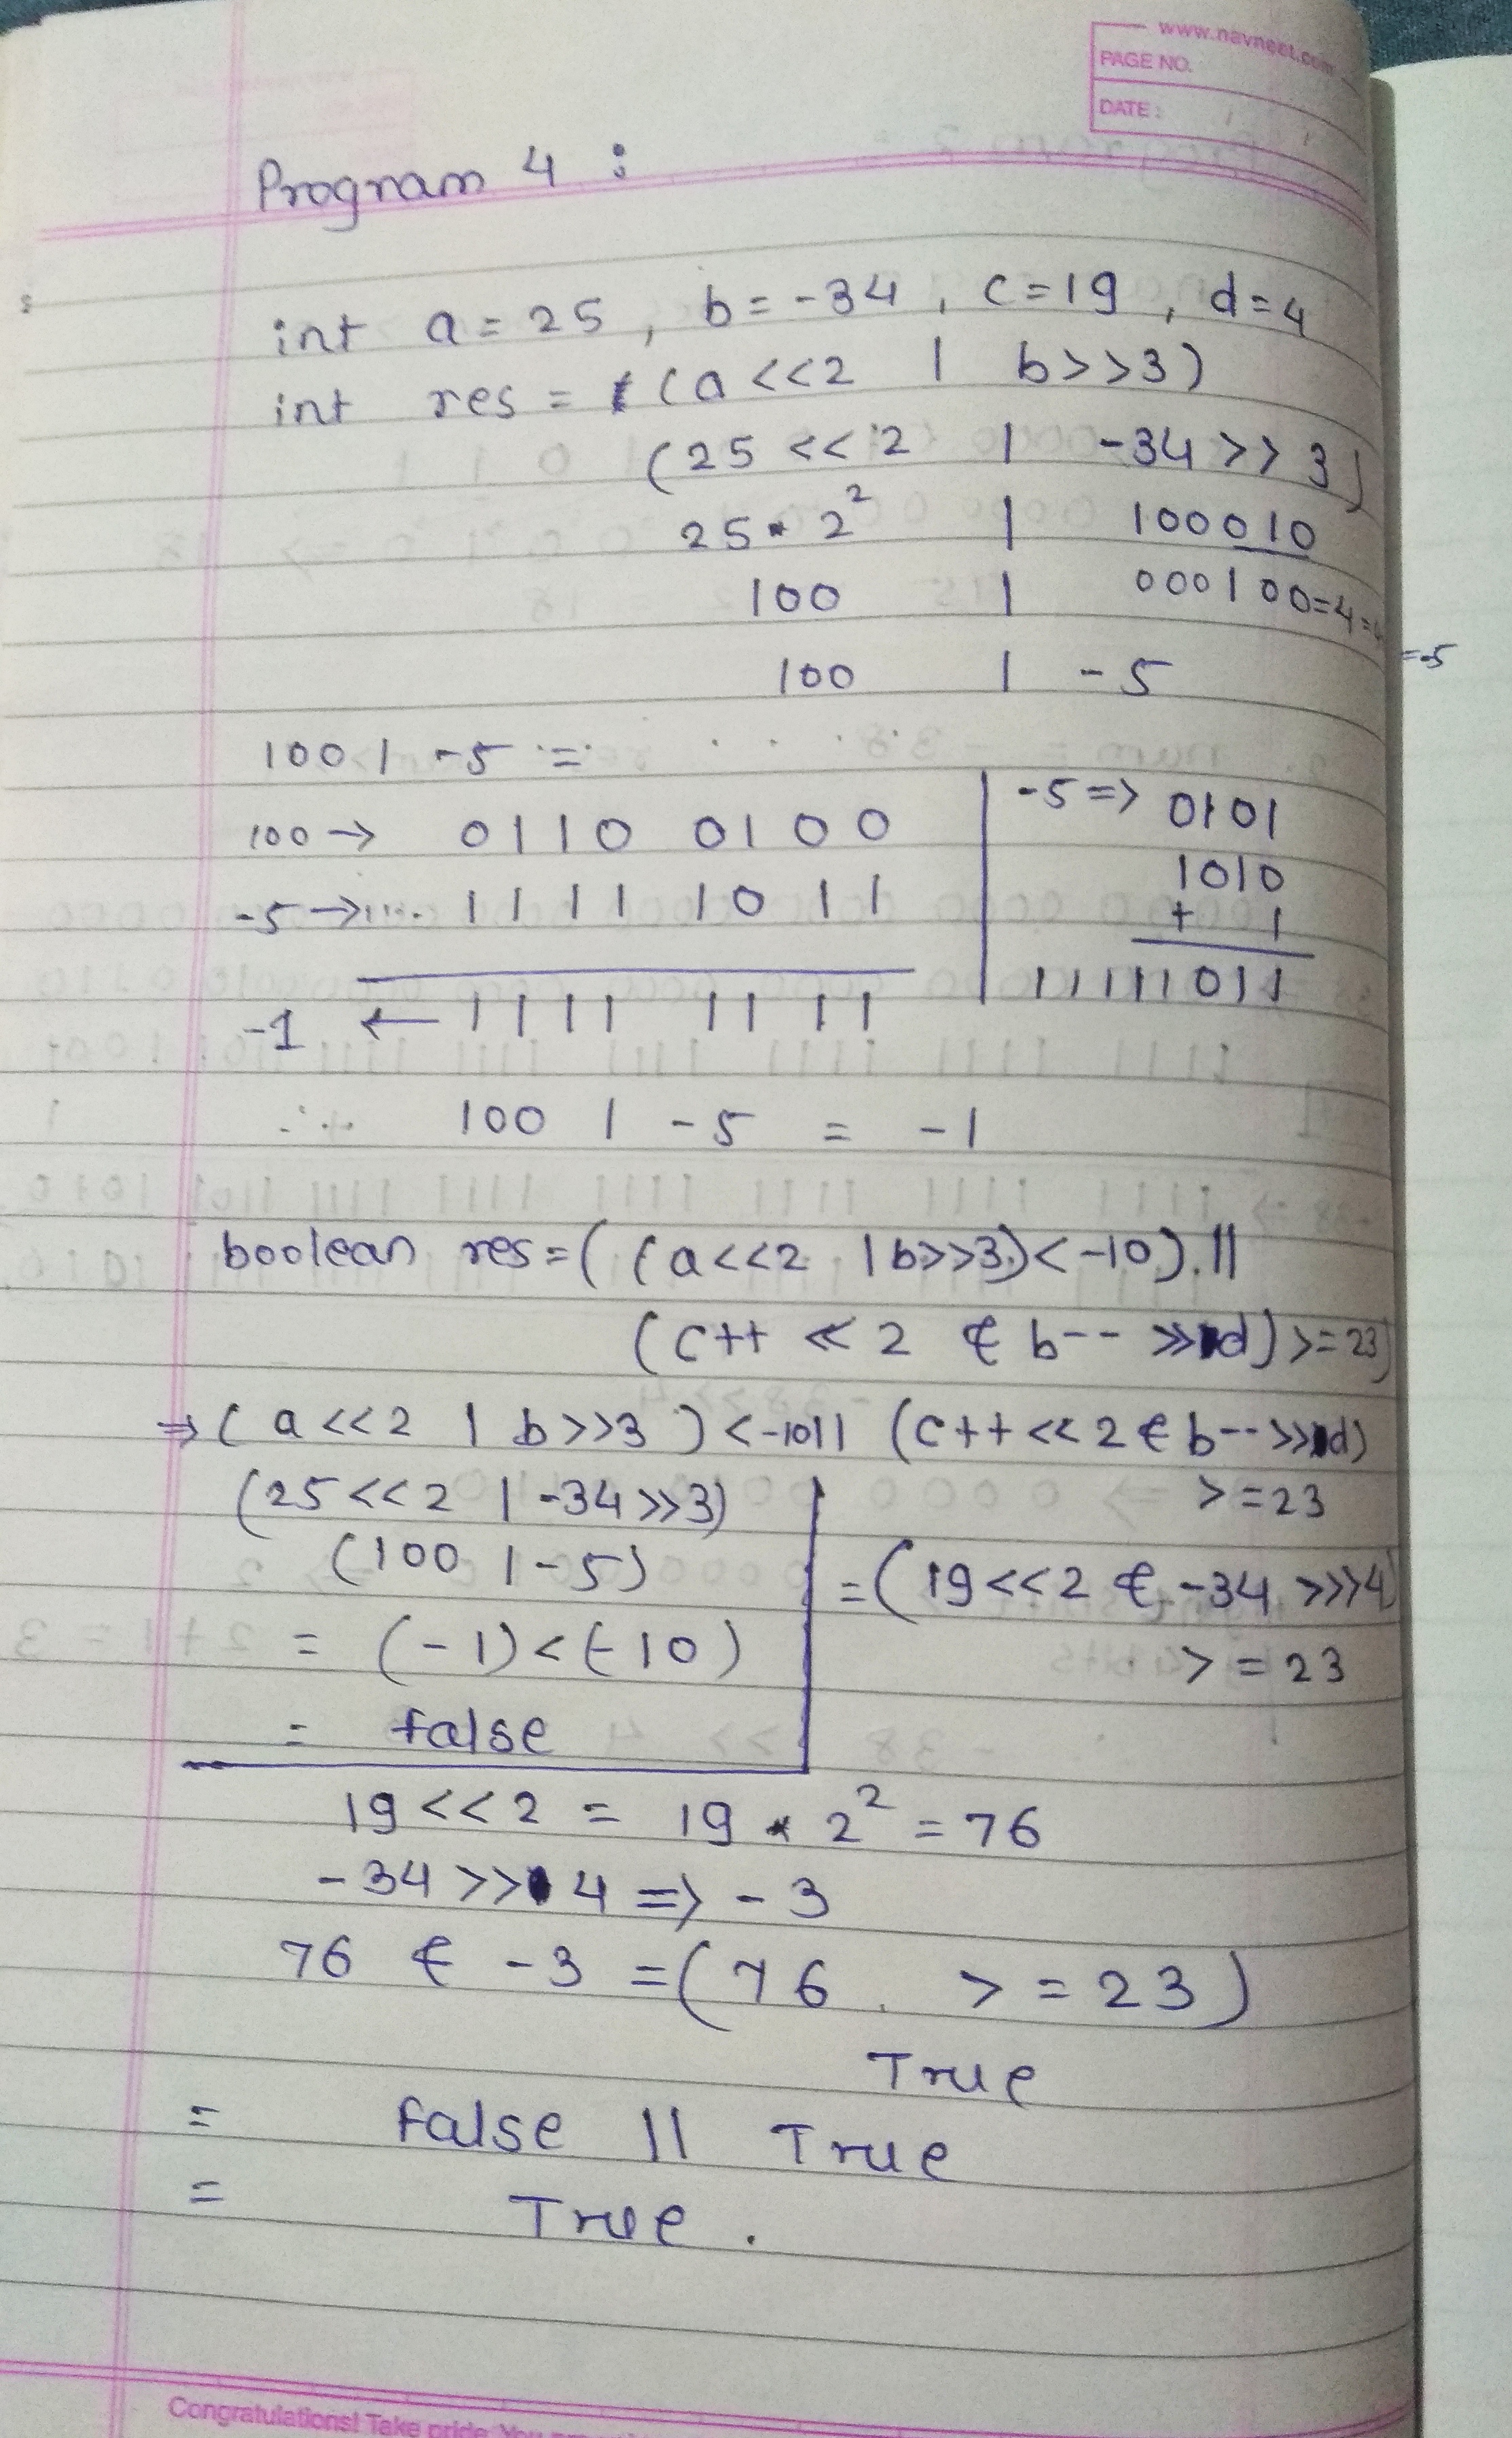 www.navneet.com
PAGE NO.
DATE :
Program 4 :
int a = 25 , b = -34 , c = 19 , d = 4
int res = (a <<2 | b>>3)
(25 << 2 | -34 >> 3)
25 * 2² | 100010
100 | 000100=4=
=-5
100 | -5
100 | -5 =
100 → 0110 0100
-5 → .... 1111 1011
-1 ← 1111 1111
-5 => 0101
1010
+ 1
11111011
∴ 100 | -5 = -1
boolean res = ( (a<<2 | b>>3) < -10) ||
(c++ << 2 & b-- >> d) >= 23)
⇒ (a<<2 | b>>3 ) < -10 || (c++ << 2 & b-- >> d)
>= 23
(25<<2 | -34 >>3)
(100 | -5)
= (-1) < (-10)
= false
= (19<<2 & -34 >>>4)
>= 23
19 << 2 = 19 * 2² = 76
-34 >> 4 => -3
76 & -3 = (76 >= 23)
True
= false || True
= True .
Congratulations! Take pride.